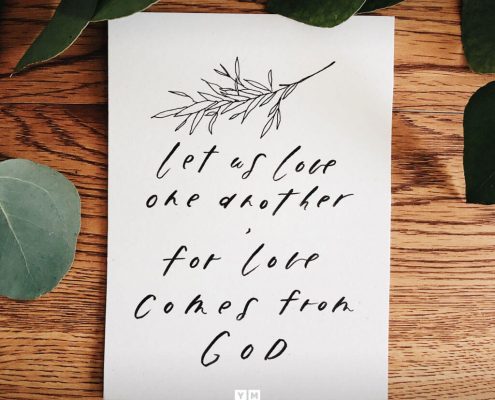 let us love
one another
,
for love
comes from
GOD
Y M